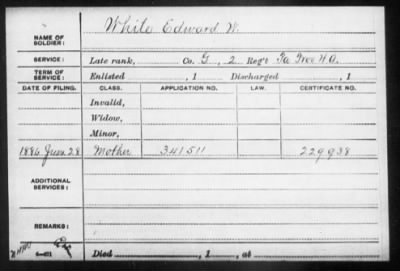 White Edward W.
NAME OF SOLDIER:
SERVICE: Late rank, Co. G, 2 Reg't Pa Prov. H.A.
TERM OF SERVICE: Enlisted , 1 Discharged , 1
DATE OF FILING. CLASS. APPLICATION NO. LAW. CERTIFICATE NO.
Invalid,
Widow,
Minor,
1886 June 28 Mother 341511 229938
ADDITIONAL SERVICES:
REMARKS:
Died , 1 , at